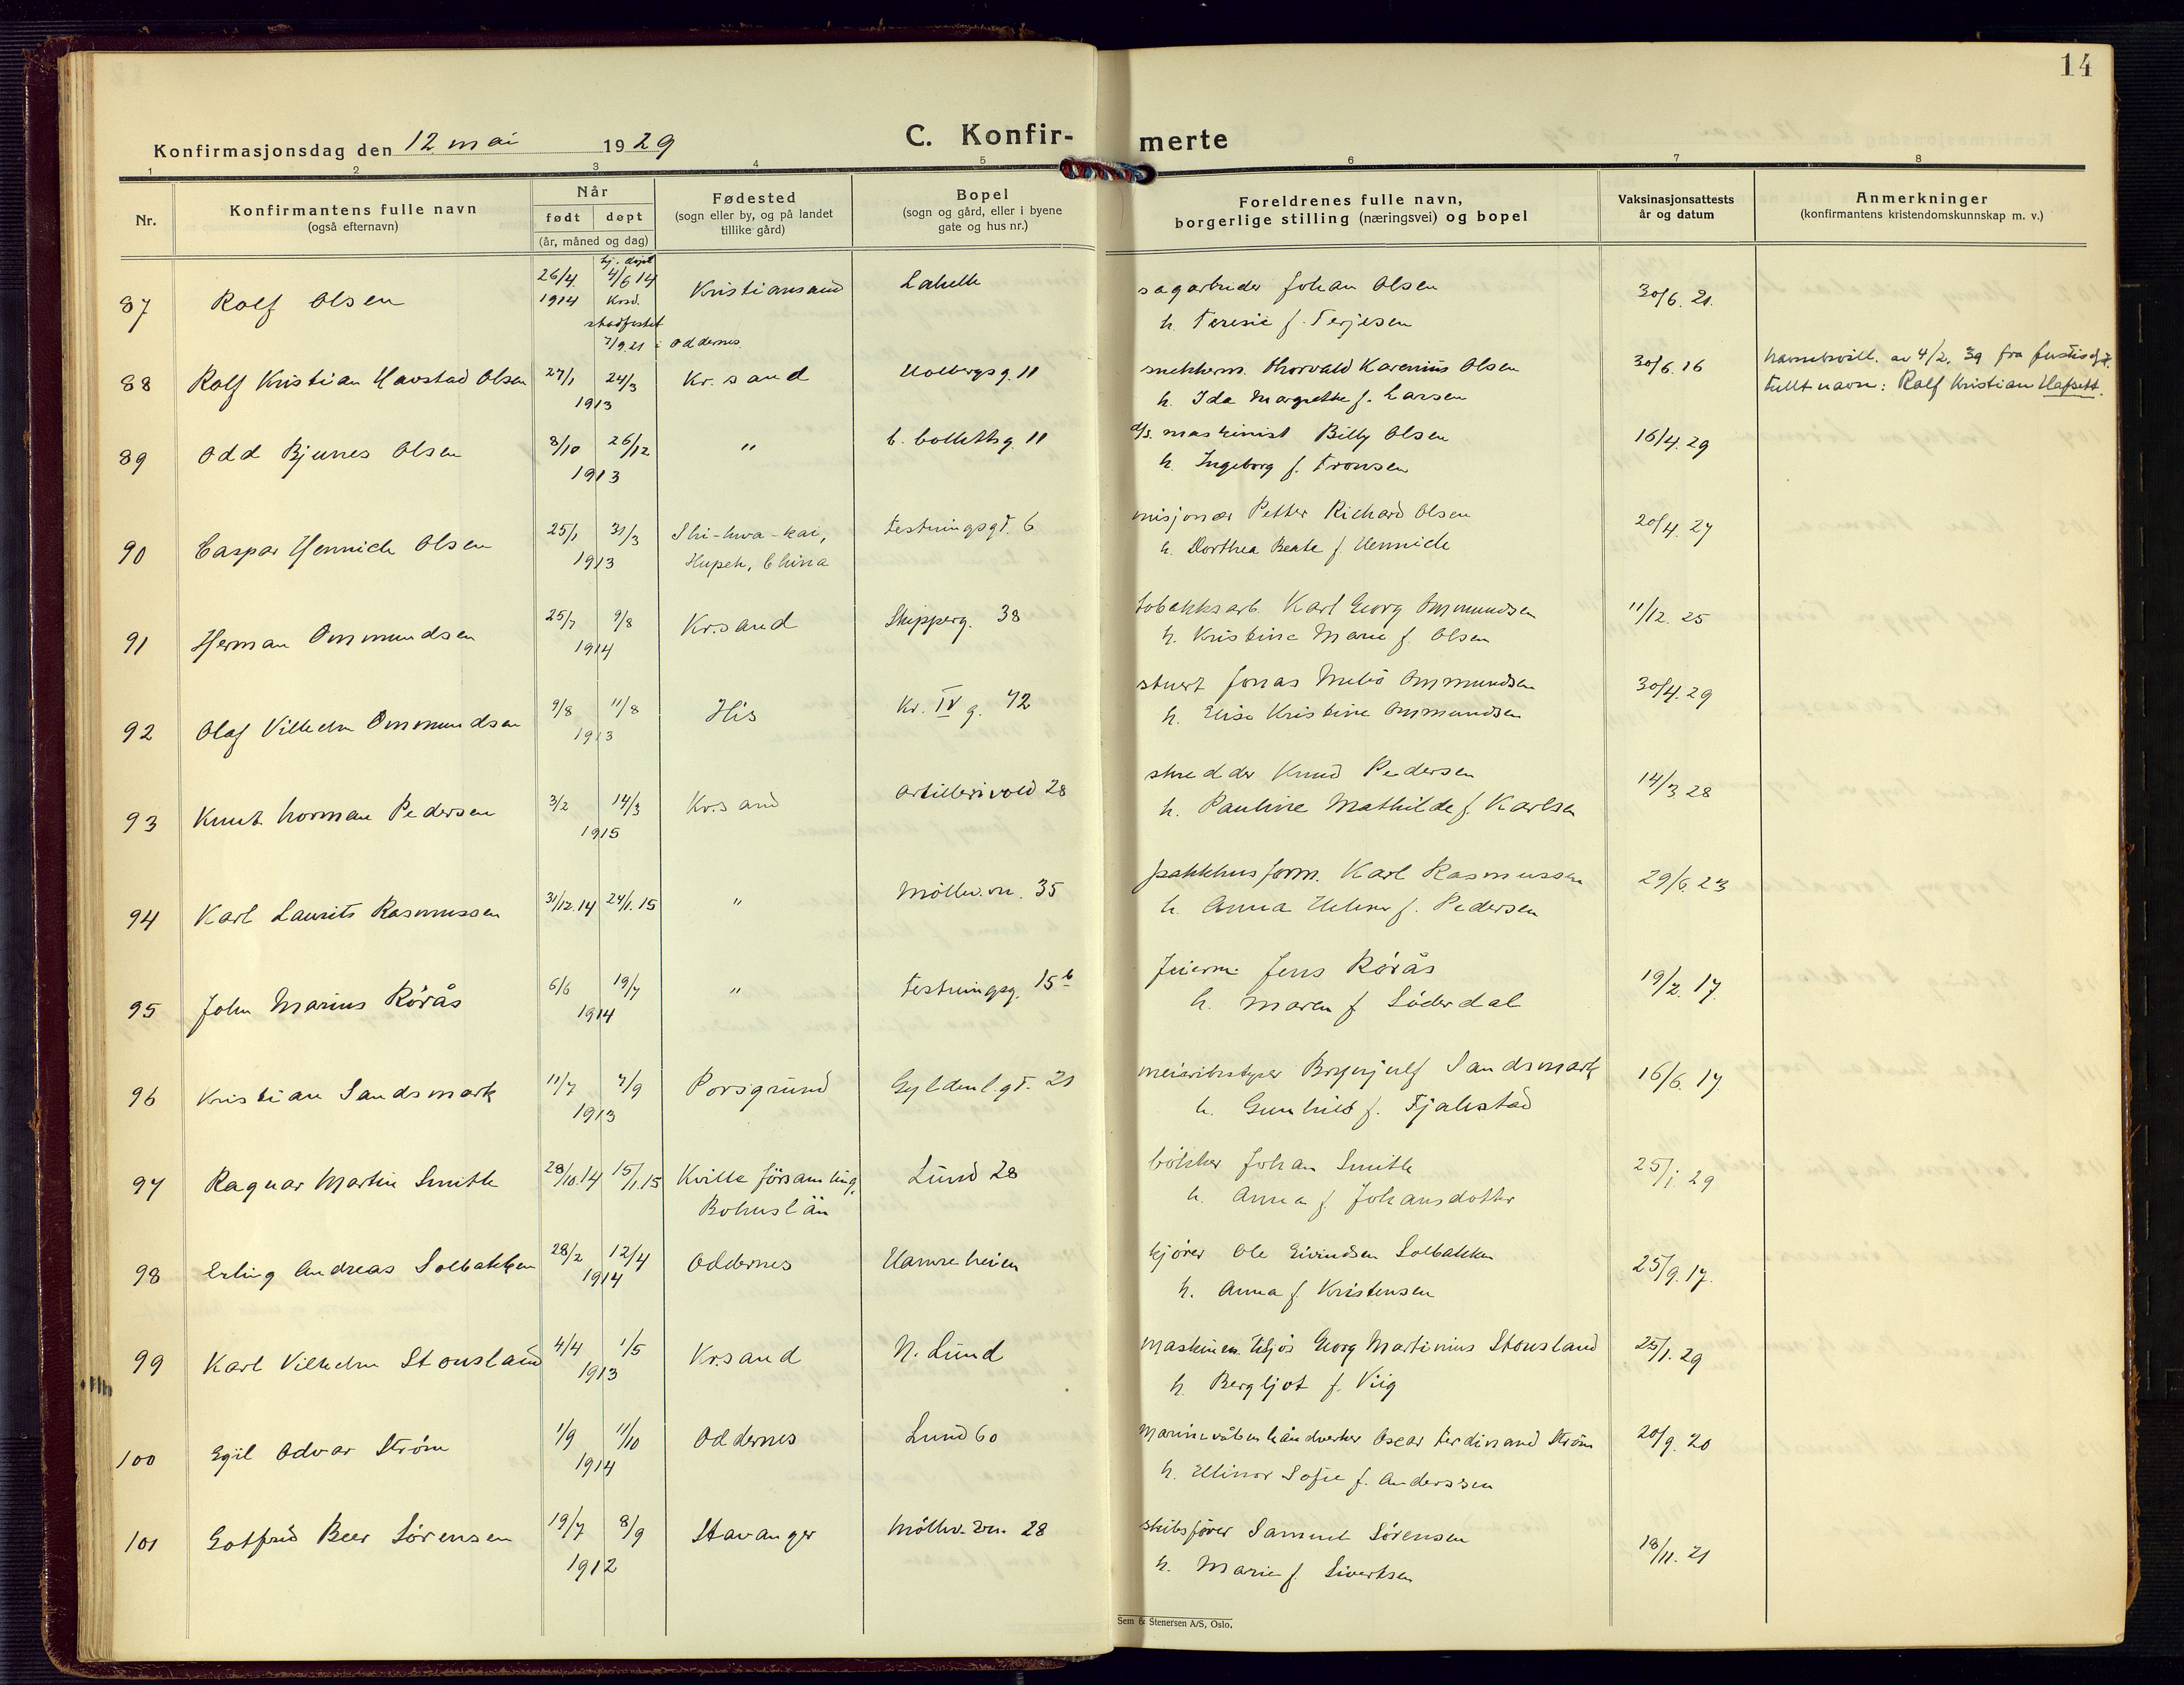 14
Konfirmasjonsdag den 12 mai 1929
C. Konfir-
merte
1 2 3 4 5 6 7 8
Nr.
Konfirmantens fulle navn
(også efternavn)
Når
født døpt
(år, måned og dag)
Fødested
(sogn eller by, og på landet
tillike gård)
Bopel
(sogn og gård, eller i byene
gate og hus nr.)
Foreldrenes fulle navn,
borgerlige stilling (næringsvei) og bopel
Vaksinasjonsattests
år og datum
Anmerkninger
(konfirmantens kristendomskunnskap m. v.)
hj. døpt
87 Rolf Olsen 26/4 1914 4/6 14 Krsd. Kristiansand sagarbeider Johan Olsen 30/6. 21.
h. Teresie f. Terjesen
stadfestet
7/9.21 i Oddernes
88 Rolf Kristian Havstad Olsen 27/1 24/3 Kr.sand Holbergsg. 11 snekkerm. Thorvald Karenius Olsen 30/6. 16 navnebevill. av 4/2. 39 fra
1913 h. Ida Margrethe f. Larsen fullt navn: Rolf Kristian Hafsett.
89 Odd Bjunes Olsen 8/10 26/12 " 11 d/s. maskinist Billy Olsen 16/4. 29
1913 h. Ingeborg f. Tronsen
90 Caspar Hennich Olsen 25/1 31/3 Shi-hwa-kai, Festningsgt. 6 misjonær Petter Richard Olsen 20/4. 27
1913 Hupeh, China h. Dorthea Beate f. Hennich
91 Herman Ommundsen 25/7 9/8 Kr.sand Skipperg. 38 tobakksarb. Karl Georg Ommundsen 11/12. 25
1914 h. Kristine Marie f. Olsen
92 Olaf Vilhelm Ommundsen 9/8 11/8 His Kr. IV g. 72 stuert Jonas Ommundsen 30/4. 29
1913 h. Elise Kristine Ommundsen
93 Knut Norman Pedersen 3/2 14/3 Kr.sand Artillerivold 28 skredder Knud Pedersen 14/3 28
1915 h. Pauline Mathilde f. Karlsen
94 Karl Laurits Rasmussen 31/12.14 24/1. 15 " Møllev.vn. 35 pakkhusform. Karl Rasmussen 29/6. 23
h. Anna Helene f. Pedersen
95 John Marius Rørås 6/6 19/7 " Festningsg. 15 b Jens Rørås 19/2. 17.
1914 h. Maren f. Söderdal
96 Kristian Sandsmark 11/7 7/9 Porsgrund Gyldenl.gt. 21 meieribestyrer Brynjulf Sandsmark 16/6. 17.
1913 h. Gunhild f. Fjalestad
97 Ragnar Martin Smith 28/10.14 15/1.15 Kville församling, Lund 28 bökker Johan Smith 25/1. 29
Bohuslän h. Anna f. Johansdotter
98 Erling Andreas Solbakken 28/2 12/4 Oddernes Hamreheien kjører Ole Eivindsen Solbakken 25/9. 17.
1914 h. Anna f. Kristensen
99 Karl Vilhelm Stousland 4/4 1/5 Kr.sand N. Lund maskinm. tilsjøs Georg Martinius Stousland 25/1. 29
1913 h. Bergljot f. Viig
100 Egil Odvar Strøm 1/9 11/10 Oddernes Lund 60 Marinevåbenhåndverker Oscar Ferdinand Strøm 20/9. 20
1914 h. Ellinor Sofie f. Anderssen
101 Gotfred Beer Sørensen 19/7 8/9 Stavanger Møllev.vn. 28 skibsfører Samuel Sørensen 18/11. 21
1912 h. Marie f. Sivertsen
Sem & Stenersen A/S, Oslo.